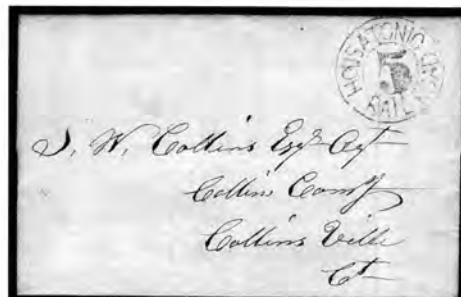 HOUSATONIC
5
RAIL
J. W. Collins Esqr Agt
Collins Compy
Collins Ville
Ct